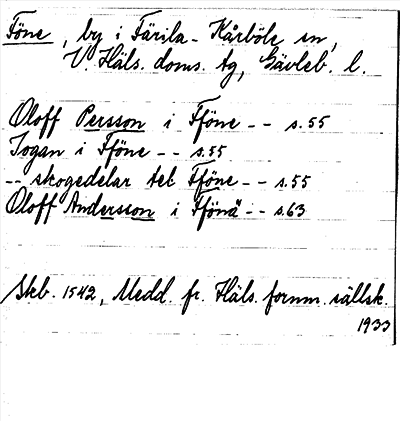 Föne, by i Färila-Kårböle sn,
V. Häls. doms. tg, Gävleb. l.
Oloff Persson i Fföne -- s.55
Jogan i Fföne -- s.55
-- skogedelar tel Fföne -- s.55
Oloff Andersson i Ffönä -- s.63
Skb. 1542, Medd. fr. Häls. fornm. sällsk.
1933